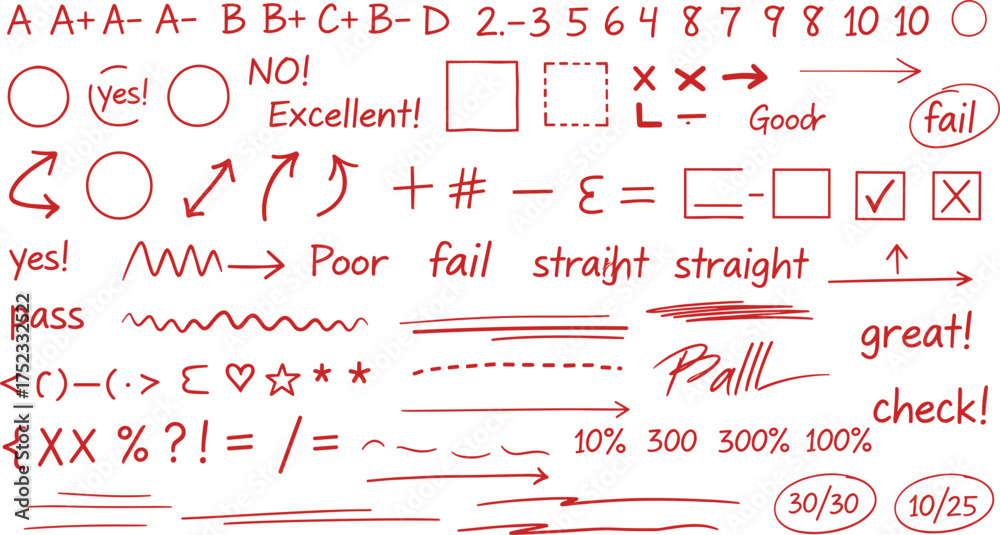 A A+ A- A- B B+ C+ B- D 2.-3 5 6 4 8 7 9 8 10 10
yes! NO! x x
Excellent! L - Good fail
+ # - = -
yes! Poor fail straight
ass great!
( ) - ( · > * * check!
X X % ? ! = / = 10% 300 300% 100%
30/30 10/25
Adobe Stock | 1752332522